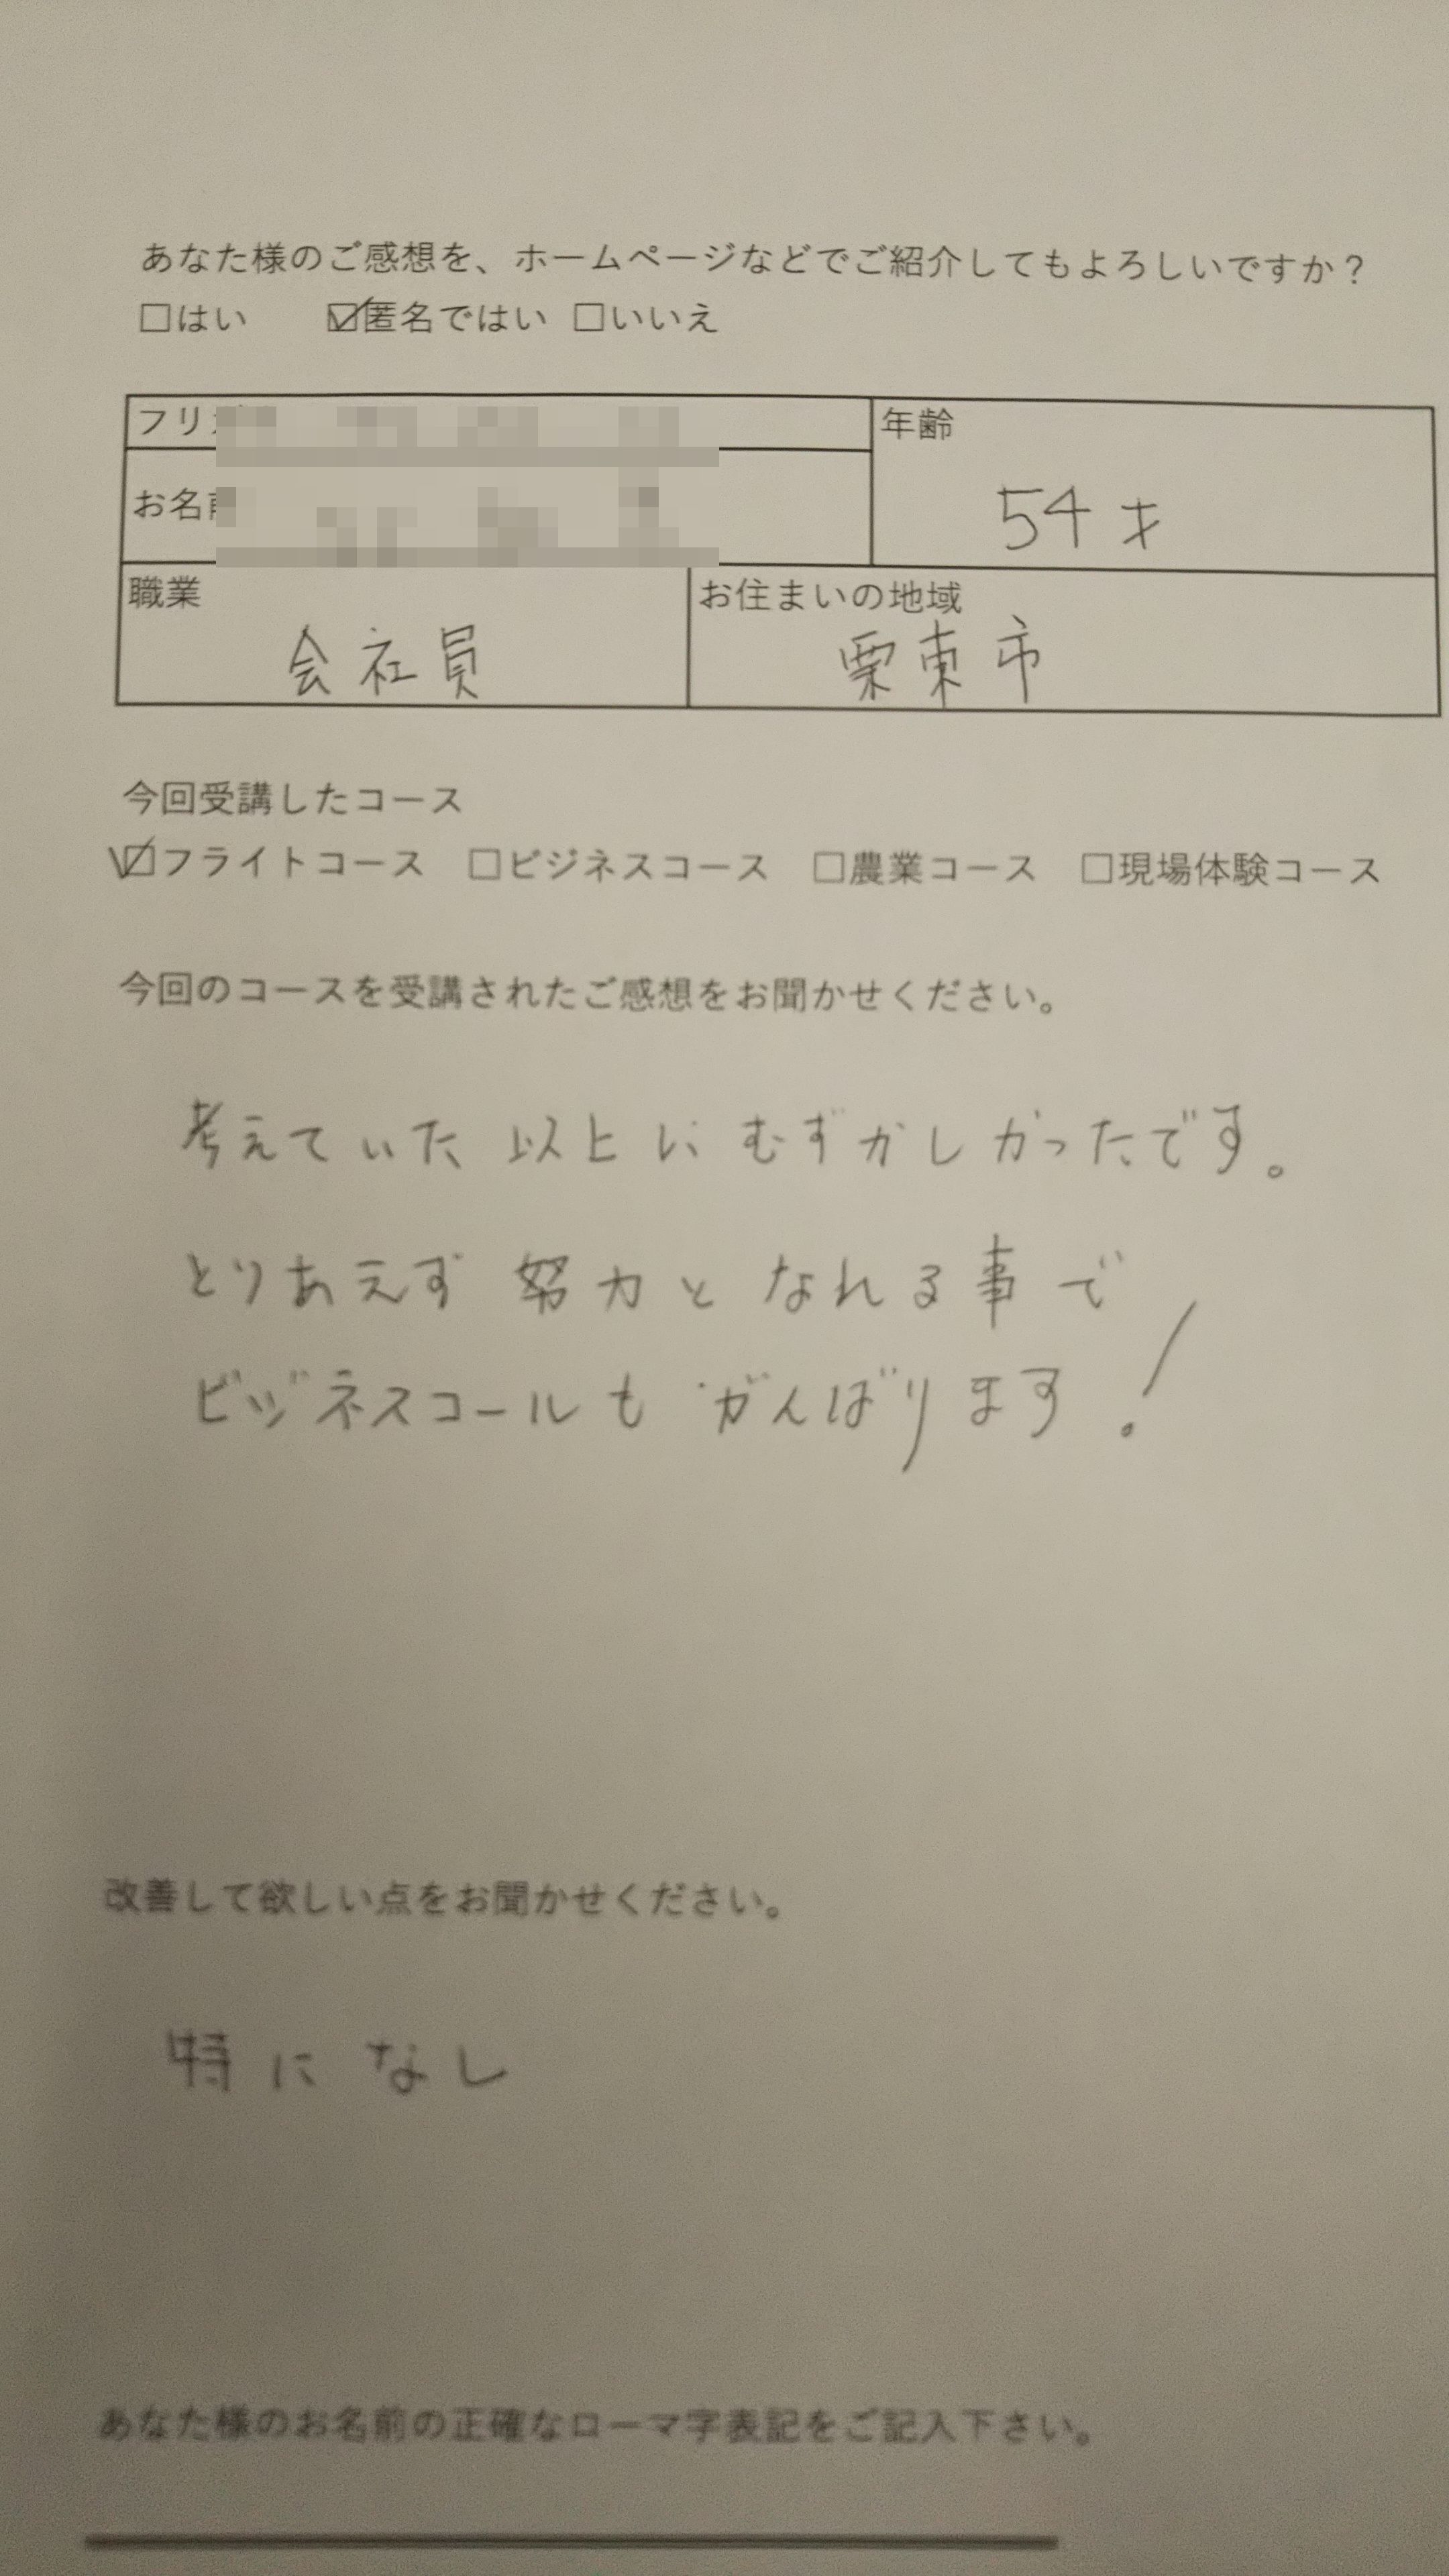 あなた様のご感想を、ホームページなどでご紹介してもよろしいですか？
□はい ☑匿名ではい □いいえ
フリ
お名前
年齢
54才
職業
会社員
お住まいの地域
栗東市
今回受講したコース
☑フライトコース □ビジネスコース □農業コース □現場体験コース
今回のコースを受講されたご感想をお聞かせください。
考えていた以上にむずかしかったです。
とりあえず努力となれる事で
ビジネスコールもがんばります！
改善して欲しい点をお聞かせください。
特になし
あなた様のお名前の正確なローマ字表記をご記入下さい。